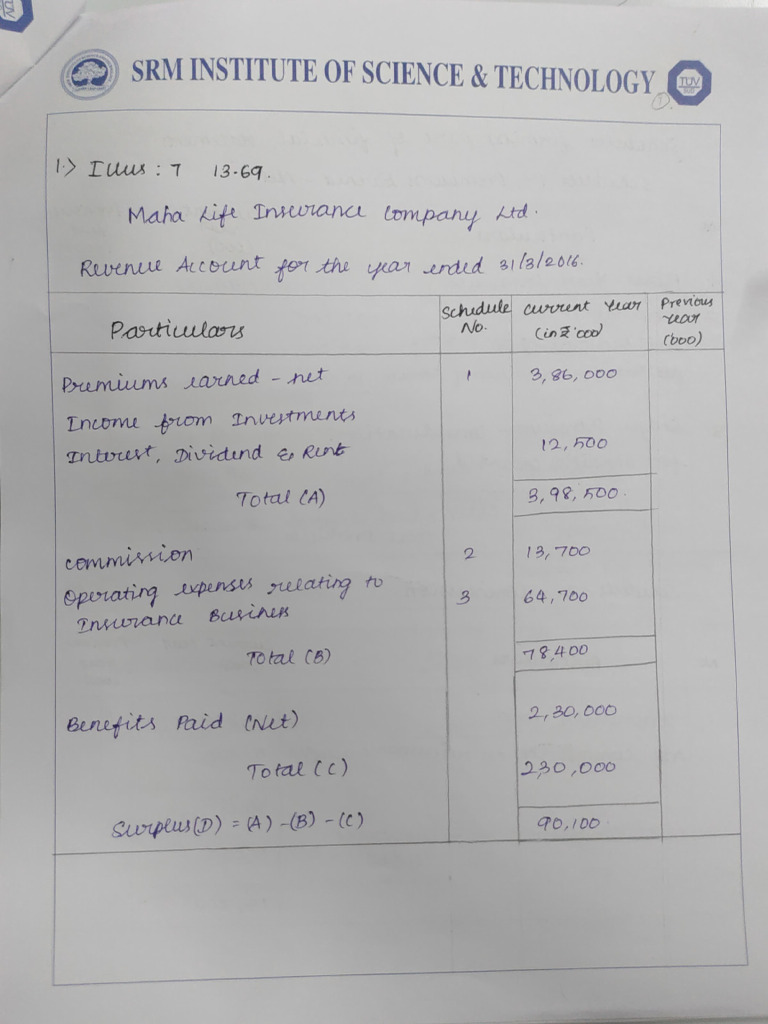 SRM INSTITUTE OF SCIENCE & TECHNOLOGY
TÜV
1.) Illus : 7 13.69.
Maha Life Insurance Company Ltd.
Revenue Account for the year ended 31/3/2016.
Particulars
Schedule No.
Current Year (in ₹'000)
Previous Year ('000)
Premiums earned - net 1 3,86,000
Income from Investments
Interest, Dividend & Rent 12,500
Total (A) 3,98,500.
Commission 2 13,700
Operating expenses relating to 3 64,700
Insurance Business
Total (B) 78,400
Benefits Paid (Net) 2,30,000
Total (C) 2,30,000
Surplus(D) = (A) - (B) - (C) 90,100